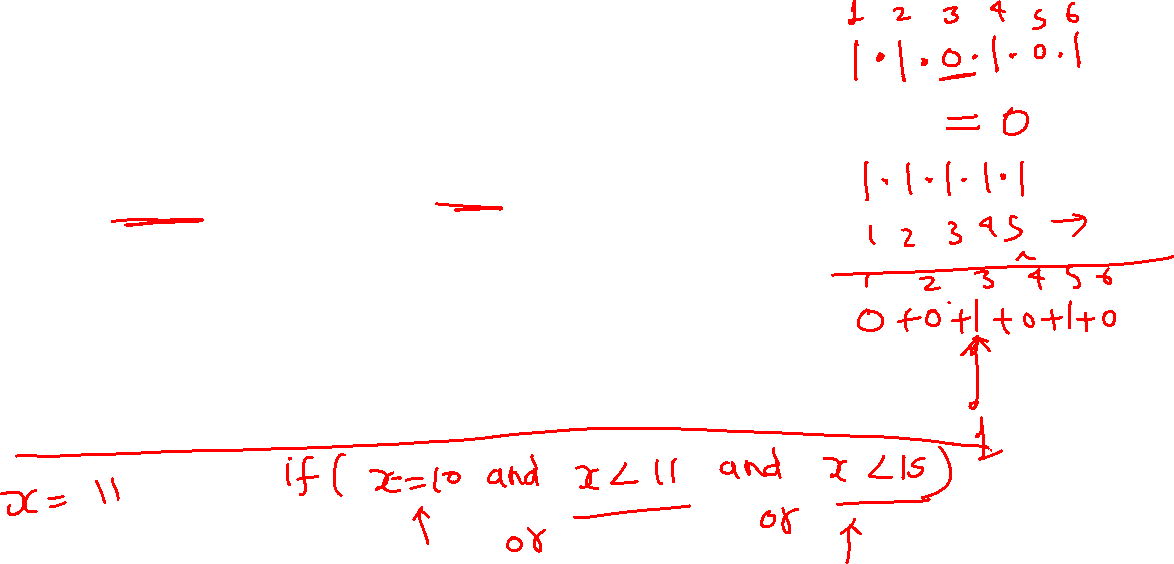 1 2 3 4 5 6
1 . 1 . 0 . 1 . 0 . 1
= 0
1 . 1 . 1 . 1 . 1
1 2 3 4 5 →
1 2 3 4 5 6
0 + 0 + 1 + 0 + 1 + 0
1
x = 11 if ( x = 10 and x < 11 and x < 15 )
or or